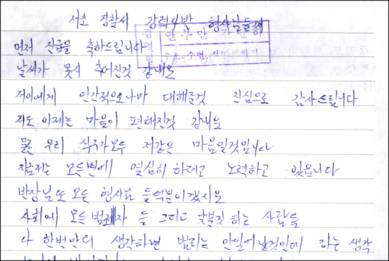 서초 경찰서 강력4반 형사님들께
먼저 신년을 축하드립니다
날씨가 몹시 추어진것 같내요
저이에게 인간적으로나마 대해줄것 진심으로 감사드립니다
저도 이제는 마음이 편해진것 같내요
우리 식구가모두 저같은 마음일것입니다
지금저는 모든면에 열심히 하려고 노력하고 있읍니다
반장님 또 모든 형사님들 덕분이겠지요
사회에 모든 범죄자 들 그리고 나쁜짓 하는 사람들
다 한번만더 생각하면 범죄는 안일어날것인데 라는 생각